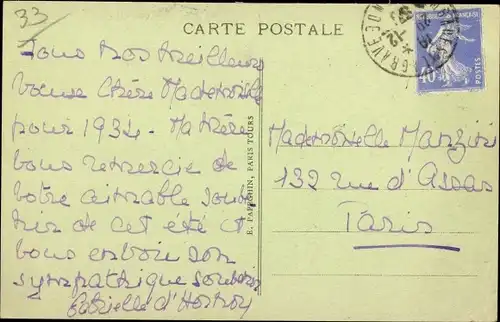 33
CARTE POSTALE
Tous nos meilleurs
voeux chère Mademoiselle
pour 1934 - Ma Mère
vous remercie de
votre aimable souve
nir de cet été et
vous envoie son
sympathique souvenir
Gabrielle
E. PAPEGHIN, PARIS TOURS
POSTES
40
Mademoiselle
132 rue d'Assas
Paris